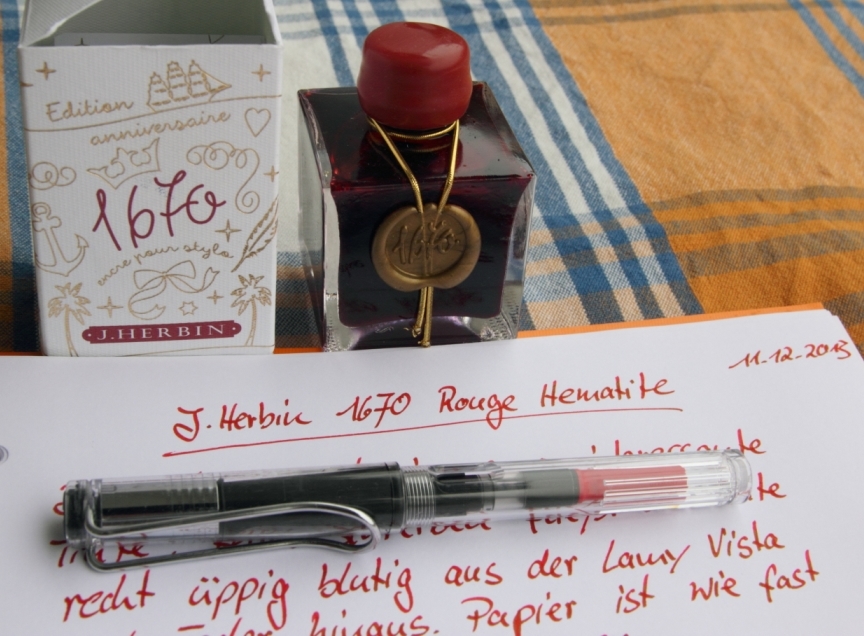 Edition
anniversaire
1670
encre pour stylo
J.HERBIN
1670
11-12-2013
J. Herbin 1670 Rouge Hematite
recht üppig blutig aus der Lamy Vista
hinaus. Papier ist wie fast